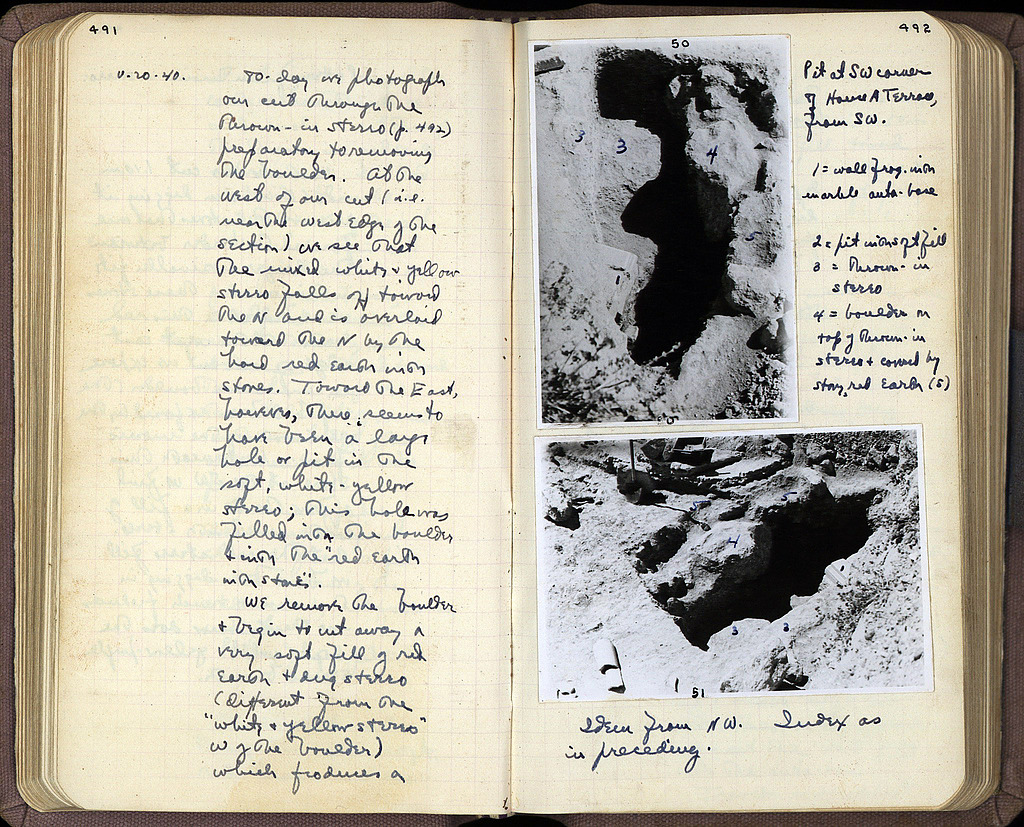 491
V-20-40. To-day we photograph
our cut through the
thrown-in stereo (p. 492)
preparatory to removing
the boulder. At the
west of our cut (i.e.
near the west edge of the
section) we see that
the mixed white + yellow
stereo falls off toward
the N and is overlaid
toward the N by the
hard red earth with
stones. Toward the East,
however, there seems to
have been a large
hole or pit in the
soft, white-yellow
stereo; this hole was
filled with the boulder
+ with the "red earth
with stones".
We remove the boulder
+ begin to cut away a
very soft fill of red
earth + dug stereo
(different from the
"white + yellow stereo"
W of the boulder)
which produces a
492
50
3 3 4
5
1
Pit at SW corner
of House A Terrace,
from SW.
1 = wall frag. with
marble
2 = pit with soft fill
3 = thrown-in
stereo
4 = boulder on
top of thrown-in
stereo + covered by
stony, red earth (5)
5
5
4
3 3
51
Idem from NW. Index as
in preceding.